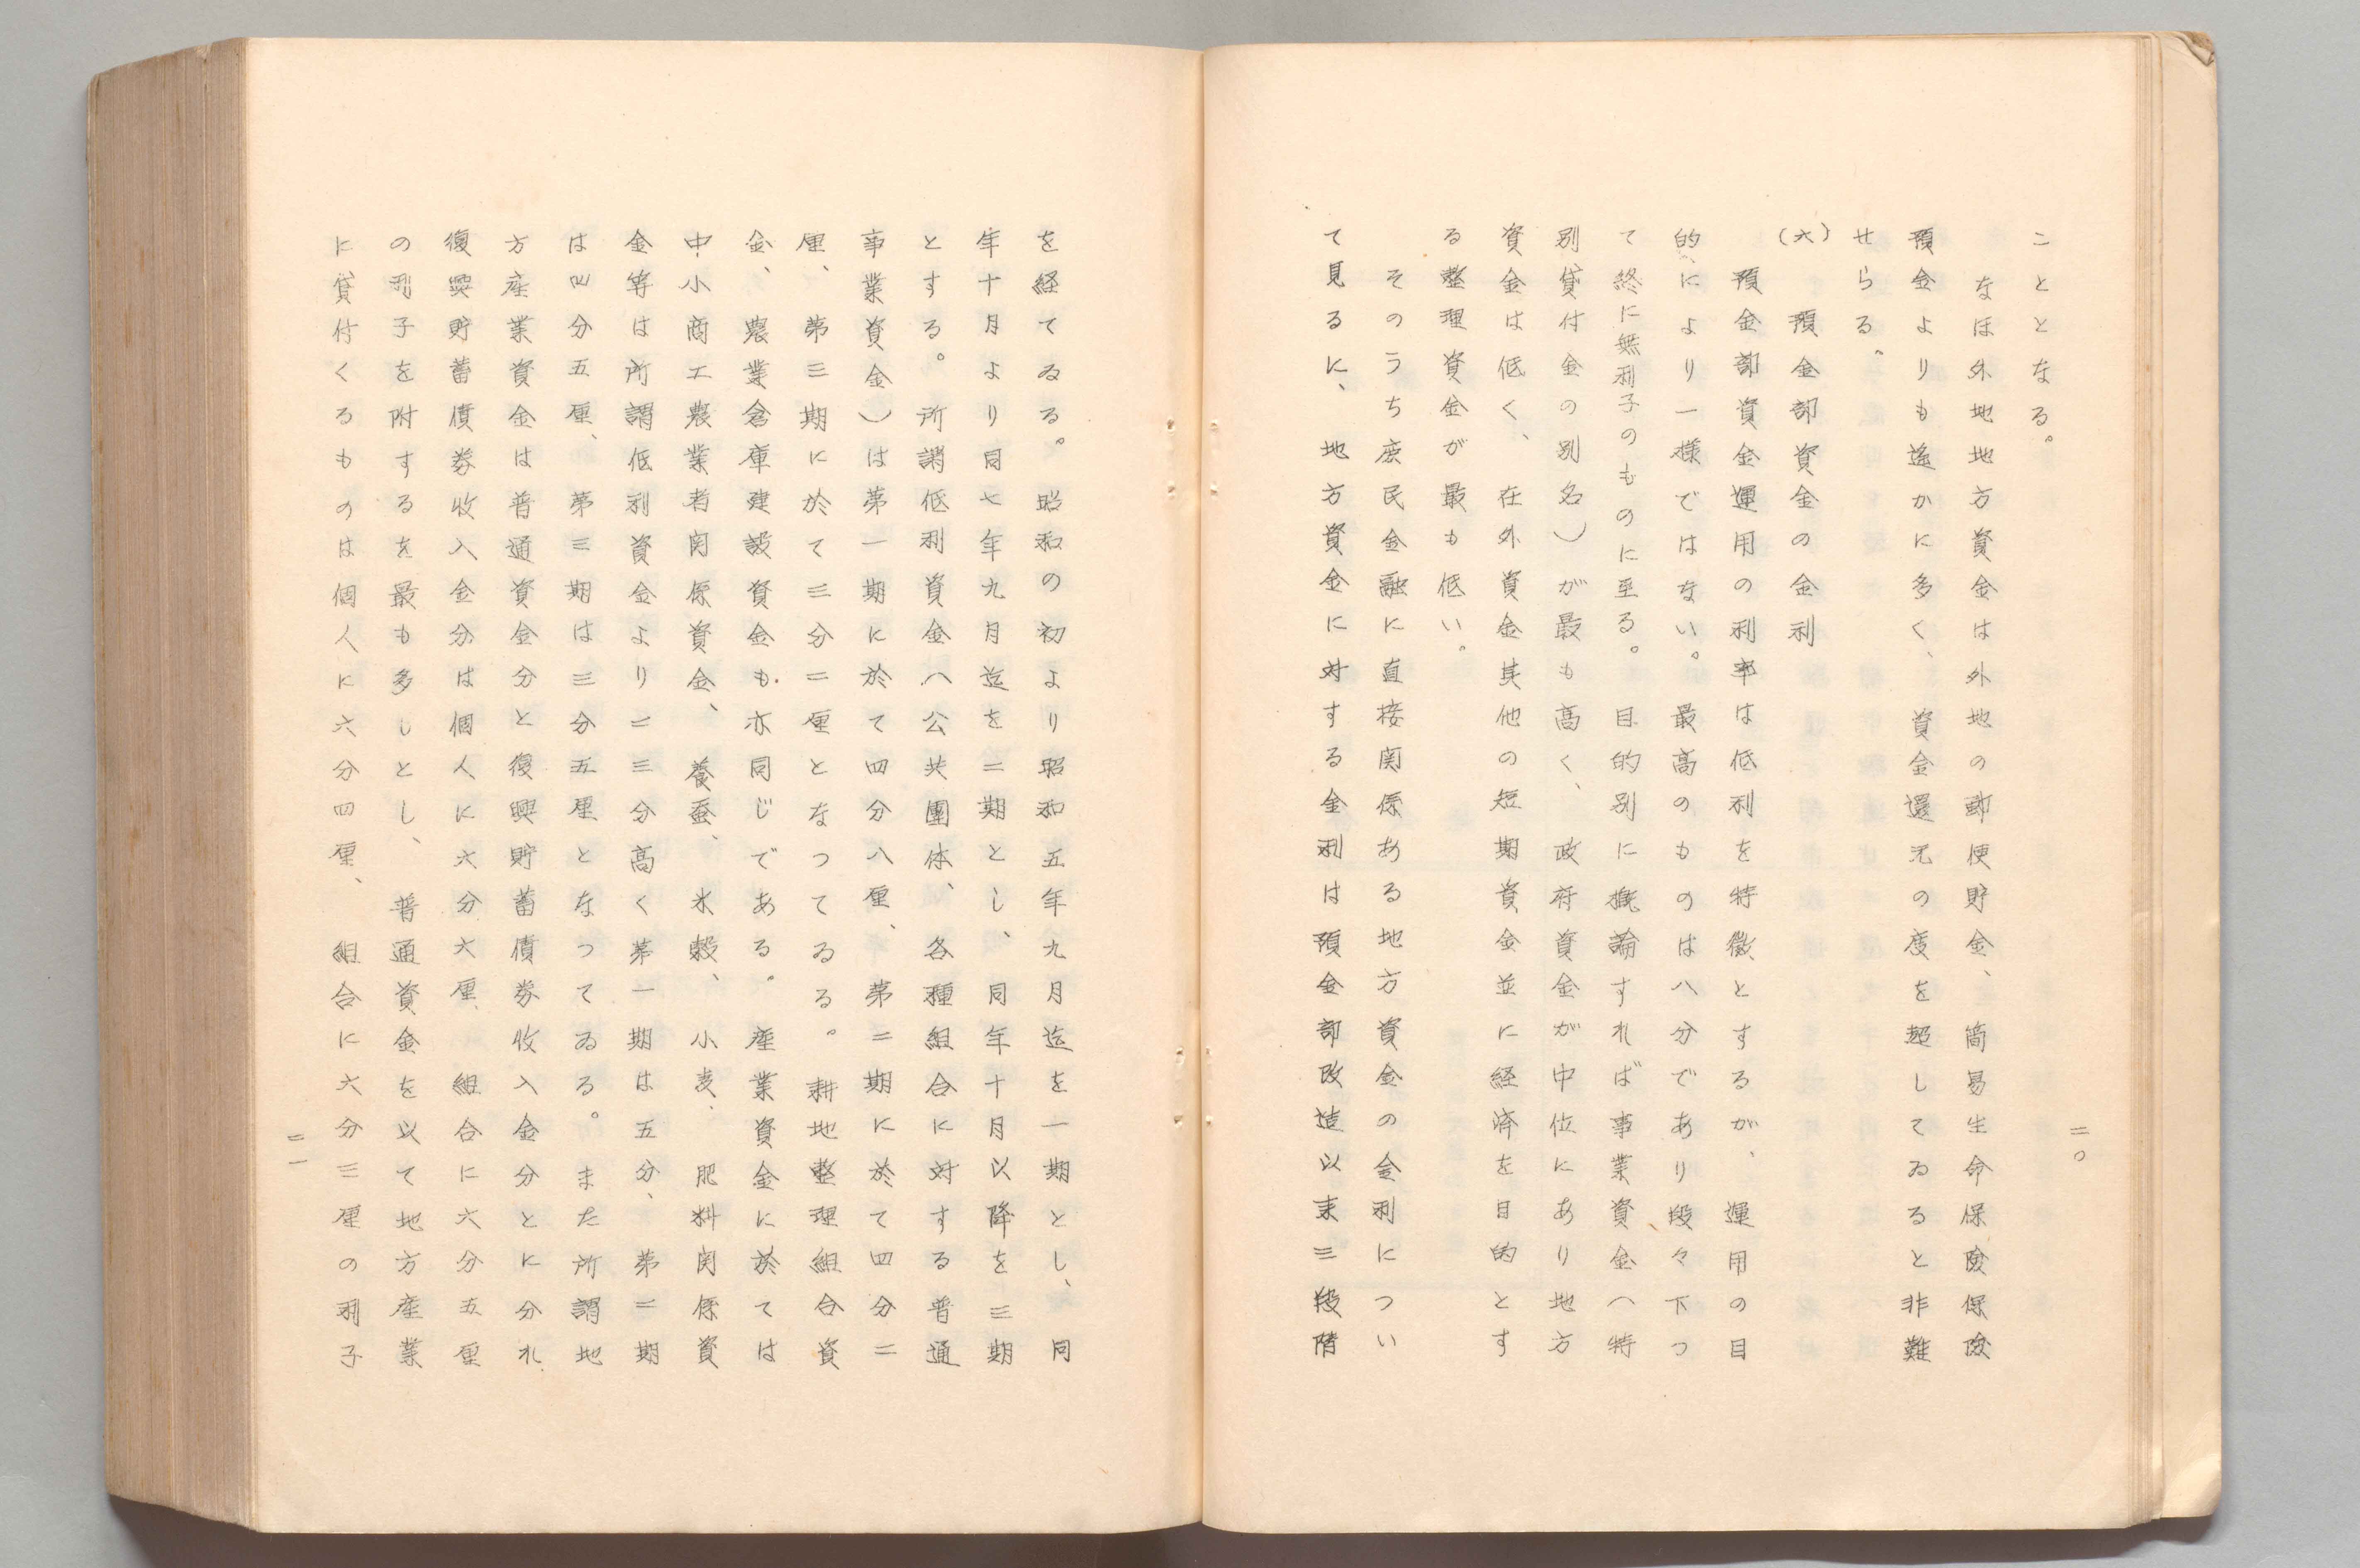 二〇
こととなる。
なほ外地地方資金は外地の郵便貯金、簡易生命保険保険
預金よりも遙かに多く、資金還元の度を超してゐると非難
せらる。
(六) 預金部資金の金利
預金部資金運用の利率は低利を特徴とするが、運用の目
的により一様ではない。最高のものは八分であり段々下つ
て終に無利子のものに至る。目的別に概論すれば事業資金(特
別貸付金の別名)が最も高く、政府資金が中位にあり地方
資金は低く、在外資金其他の短期資金並に経済を目的とす
る整理資金が最も低い。
そのうち庶民金融に直接関係ある地方資金の金利につい
て見るに、地方資金に対する金利は預金部改造以来三段階
を経てゐる。昭和の初より昭和五年九月迄を一期とし、同
年十月より同七年九月迄を二期とし、同年十月以降を三期
とする。所謂低利資金(公共團体、各種組合に対する普通
事業資金)は第一期に於て四分八厘、第二期に於て四分二
厘、第三期に於て三分二厘となつてゐる。耕地整理組合資
金、農業倉庫建設資金も亦同じである。産業資金に於ては
中小商工農業者関係資金、養蚕、米穀、小麦、肥料関係資
金等は所謂低利資金より二三分高く第一期は五分、第二期
は四分五厘、第三期は三分五厘となつてゐる。また所謂地
方産業資金は普通資金分と復興貯蓄債券收入金分とに分れ
復興貯蓄債券收入金分は個人に六分六厘、組合に六分五厘
の利子を附するを最も多しとし、普通資金を以て地方産業
に貸付くるものは個人に六分四厘、組合に六分三厘の利子
二一